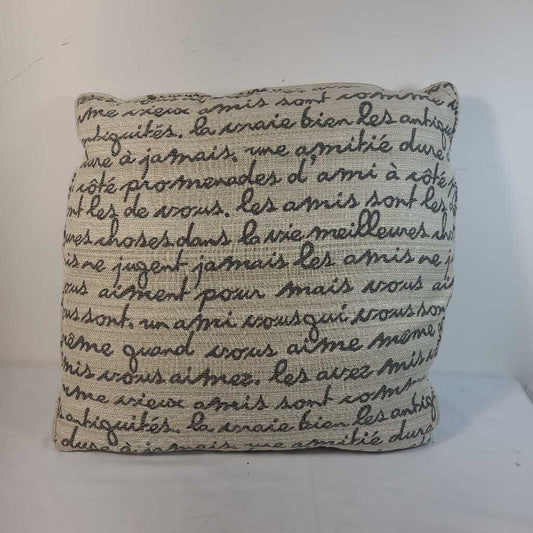 me vieux amis sont comme
antiquités. la vraie bien les antiqu
dure à jamais. une amitié dure
côté promenades d'ami à côté p
nt les de vous. les amis sont les d
ures choses dans la vie meilleures cho
is ne jugent jamais les amis ne j
ous aiment pour mais vous ai
us sont. un ami vous qui vous son
ême quand vous aime même
mis vous aimez. les avez mis v
me vieux amis sont comm
antiquités. la vraie bien les antiq
dure à jamais. une amitié dure